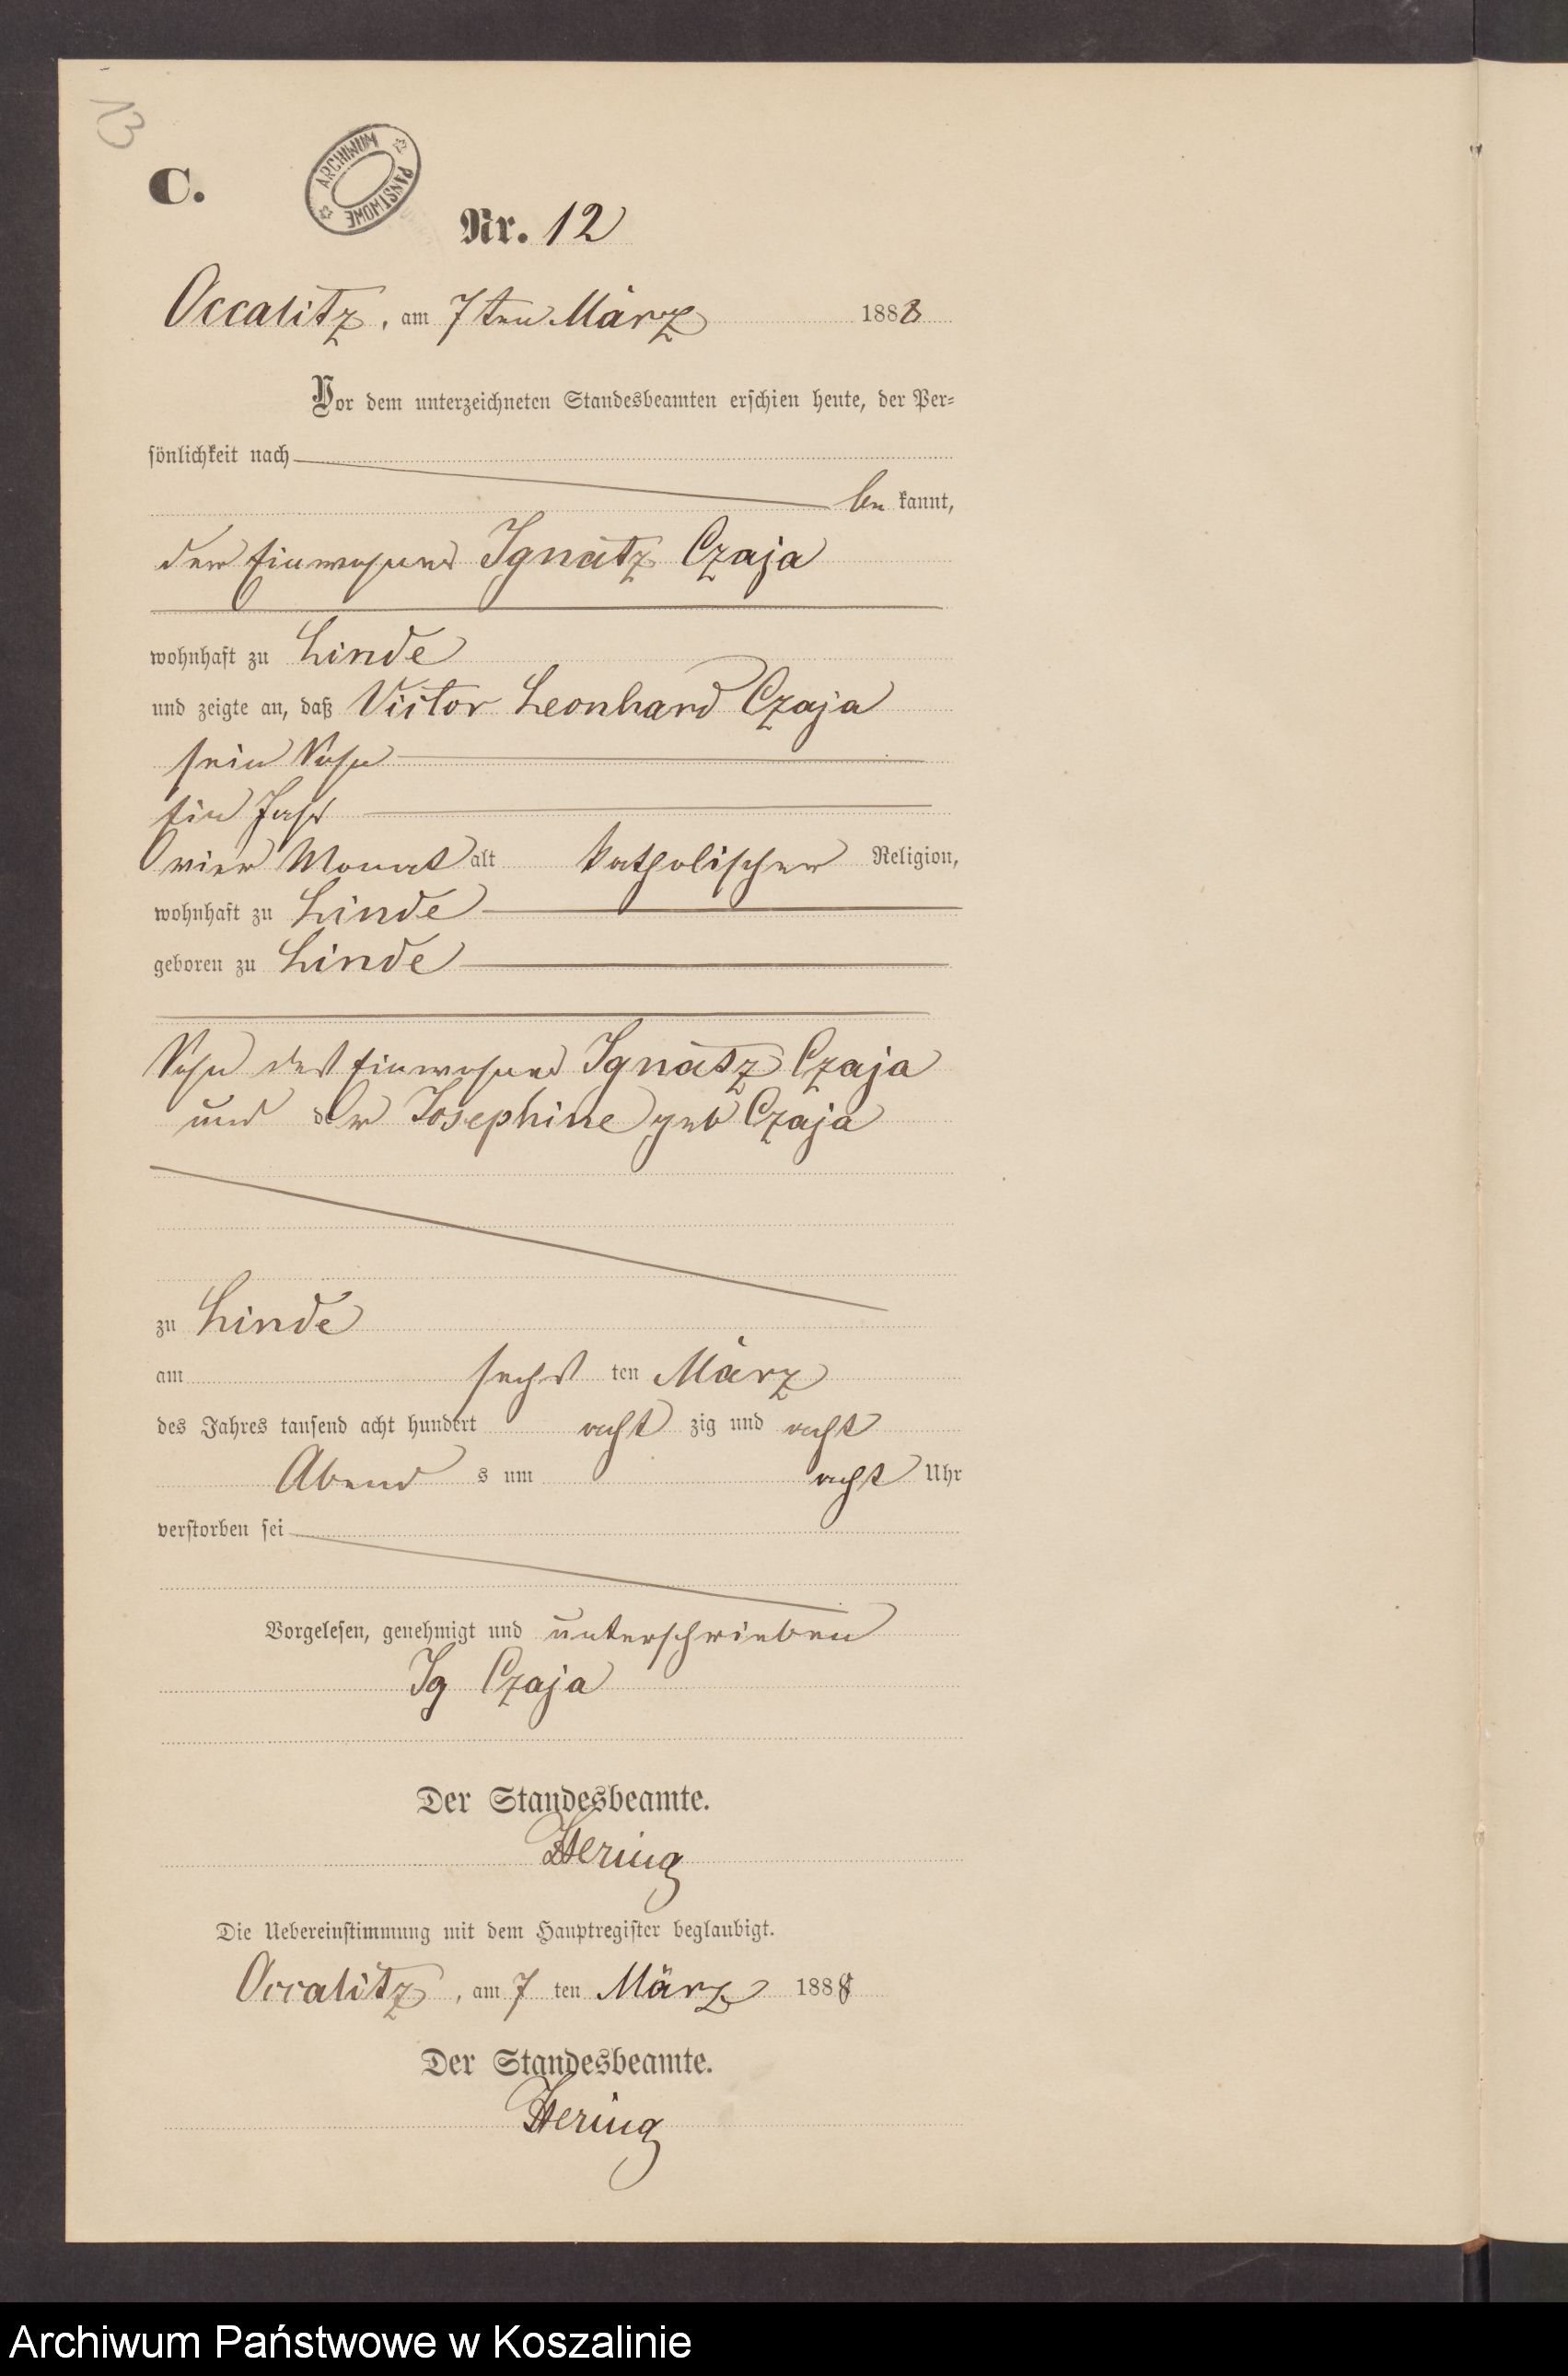 13
C.
ARCHIWUM PAŃSTWOWE
Nr. 12
Occalitz, am 7ten März 1888
Vor dem unterzeichneten Standesbeamten erschien heute, der Per=
sönlichkeit nach
be kannt,
der Einwohner Ignatz Czaja
wohnhaft zu Linde
und zeigte an, daß Victor Leonhard Czaja
sein Sohn
Ein Jahr
vier Monat alt katholischer Religion,
wohnhaft zu Linde
geboren zu Linde
Sohn des Einwohner Ignatz Czaja
und der Josephine geb Czaja
zu Linde
am sechs ten März
des Jahres tausend acht hundert acht zig und acht
Abend s um acht Uhr
verstorben sei
Vorgelesen, genehmigt und unterschrieben
Ig Czaja
Der Standesbeamte.
Hering
Die Uebereinstimmung mit dem Hauptregister beglaubigt.
Occalitz, am 7 ten März 1888
Der Standesbeamte.
Hering
Archiwum Państwowe w Koszalinie